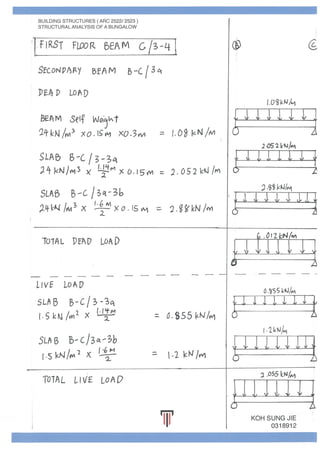 BUILDING STRUCTURES ( ARC 2522/ 2523 )
STRUCTURAL ANALYSIS OF A BUNGALOW
FIRST FLOOR BEAM C/3-4
B C
SECONDARY BEAM B-C/3a
DEAD LOAD
1.08kN/m
BEAM Self Weight
24kN/m³ x0.15m x0.3m = 1.08 kN/m
2.052kN/m
SLAB B-C/3-3a
24 kN/m³ x 1.14m/2 x 0.15m = 2.052 kN/m
2.88kN/m
SLAB B-C/3a-3b
24kN/m³ x 1.6m/2 x 0.15m = 2.88kN/m
TOTAL DEAD LOAD
6.012kN/m
LIVE LOAD
0.855kN/m
SLAB B-C/3-3a
1.5 kN/m² x 1.14m/2 = 0.855 kN/m
1.2kN/m
SLAB B-C/3a-3b
1.5 kN/m² x 1.6m/2 = 1.2 kN/m
2.055kN/m
TOTAL LIVE LOAD
KOH SUNG JIE
0318912